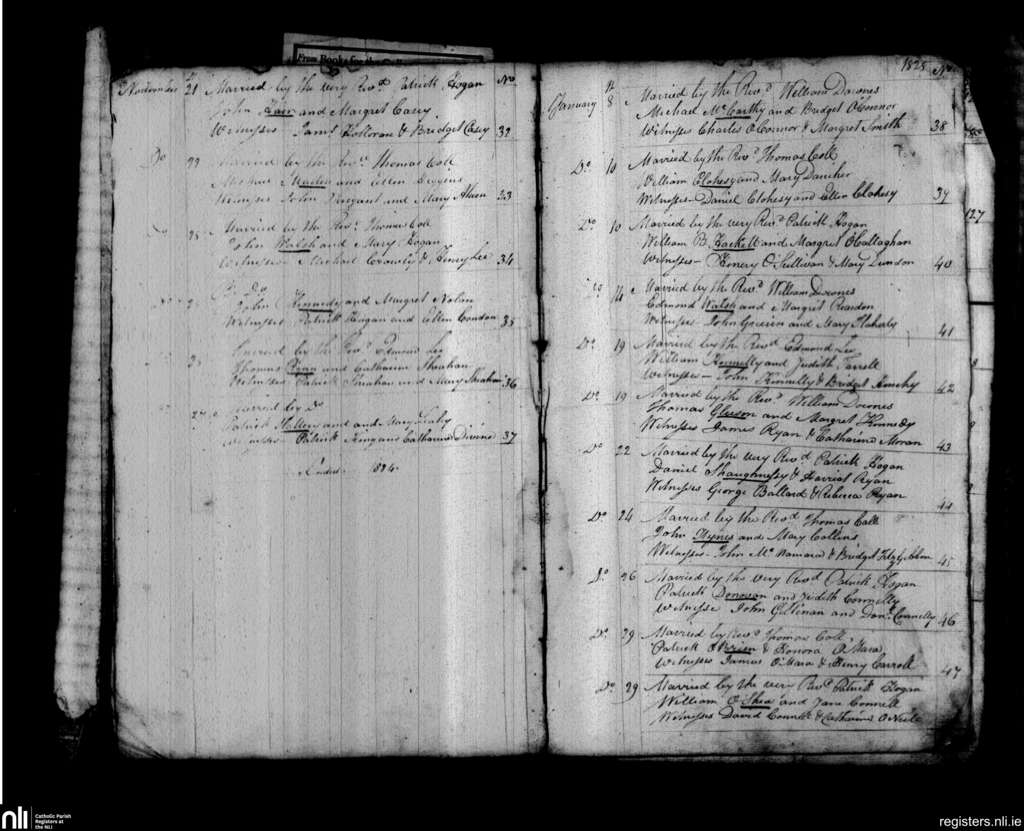 From Books for the
November 21 Married by the very Revd. Patrick Hogan No
John and Margret Casey
Witnesses Jams. Holloran & Bridget Casey 32
Do 22 Married by the Revd. Thomas Coll
Michael and Ellen
Witnesses John and Mary Ahern 33
25 Married by the Revd. Thomas Coll
John Walsh and Mary Hogan
Witnesses Michael Crowley & Henry Lee 34
Do
John Kennedy and Margret Nolan
Witnesses Patrick Hogan and Ellen Condon 35
Married by the Revd. Edmond Lee
Thomas Ryan and Catharine Sheahan
Witnesses Patrick Sheahan and Mary Sheahan 36
27 Married by Do
Patrick and Mary
Witnesses Patrick Catharine Divine 37
Ended
1825 No
January 8 Married by the Revd. William Downes
Michael McCarthy and Bridget OConnor
Witnesses Charles OConnor & Margret Smith 38
Do. 10 Married by the Revd. Thomas Coll
William Clohesy and Mary Dancher
Witnesses Daniel Clohesy and Ellen Clohesy 39
127
Do. 10 Married by the very Revd. Patrick Hogan
William B. Hackett and Margret OCallaghan
Witnesses Henery O'Sullivan & Mary Lundon 40
Do 14 Married by the Revd. William Downes
Edmond Walsh and Margret Reardon
Witnesses John and Mary Flaherty 41
Do. 19 Married by the Revd Edmond Lee
William Kennelly and Judith Farrell
Witnesses John Kennelly & Bridget 42
Do. 19 Married by the Revd. William Downes
Thomas Gleeson and Margret Kennedy
Witnesses James Ryan & Catharine Moran 43
Do. 22 Married by the very Revd. Patrick Hogan
Daniel Shaughnessy & Harriot Ryan
Witnesses George Ballard & Rebecca Ryan 44
Do. 24 Married by the Revd Thomas Coll
John Hynes and Mary Collins
Witnesses John McNamara & Bridget Fitzgibbon 45
Do. 26 Married by the very Revd Patrick Hogan
Patrick Donovan and Judith Connelly
Witnesse John Gillenan and Danl. Connelly 46
Do. 29 Married by Revd. Thomas Coll
Patrick OBrien & Honora O'Mara
Witnesses James O'Mara & Henry Carroll 47
Do. 29 Married by the very Revd. Patrick Hogan
William O'Shea and Jane Connell
Witnesses David Connell & Catharine ONeill
nli Catholic Parish
Registers at
the NLI
registers.nli.ie